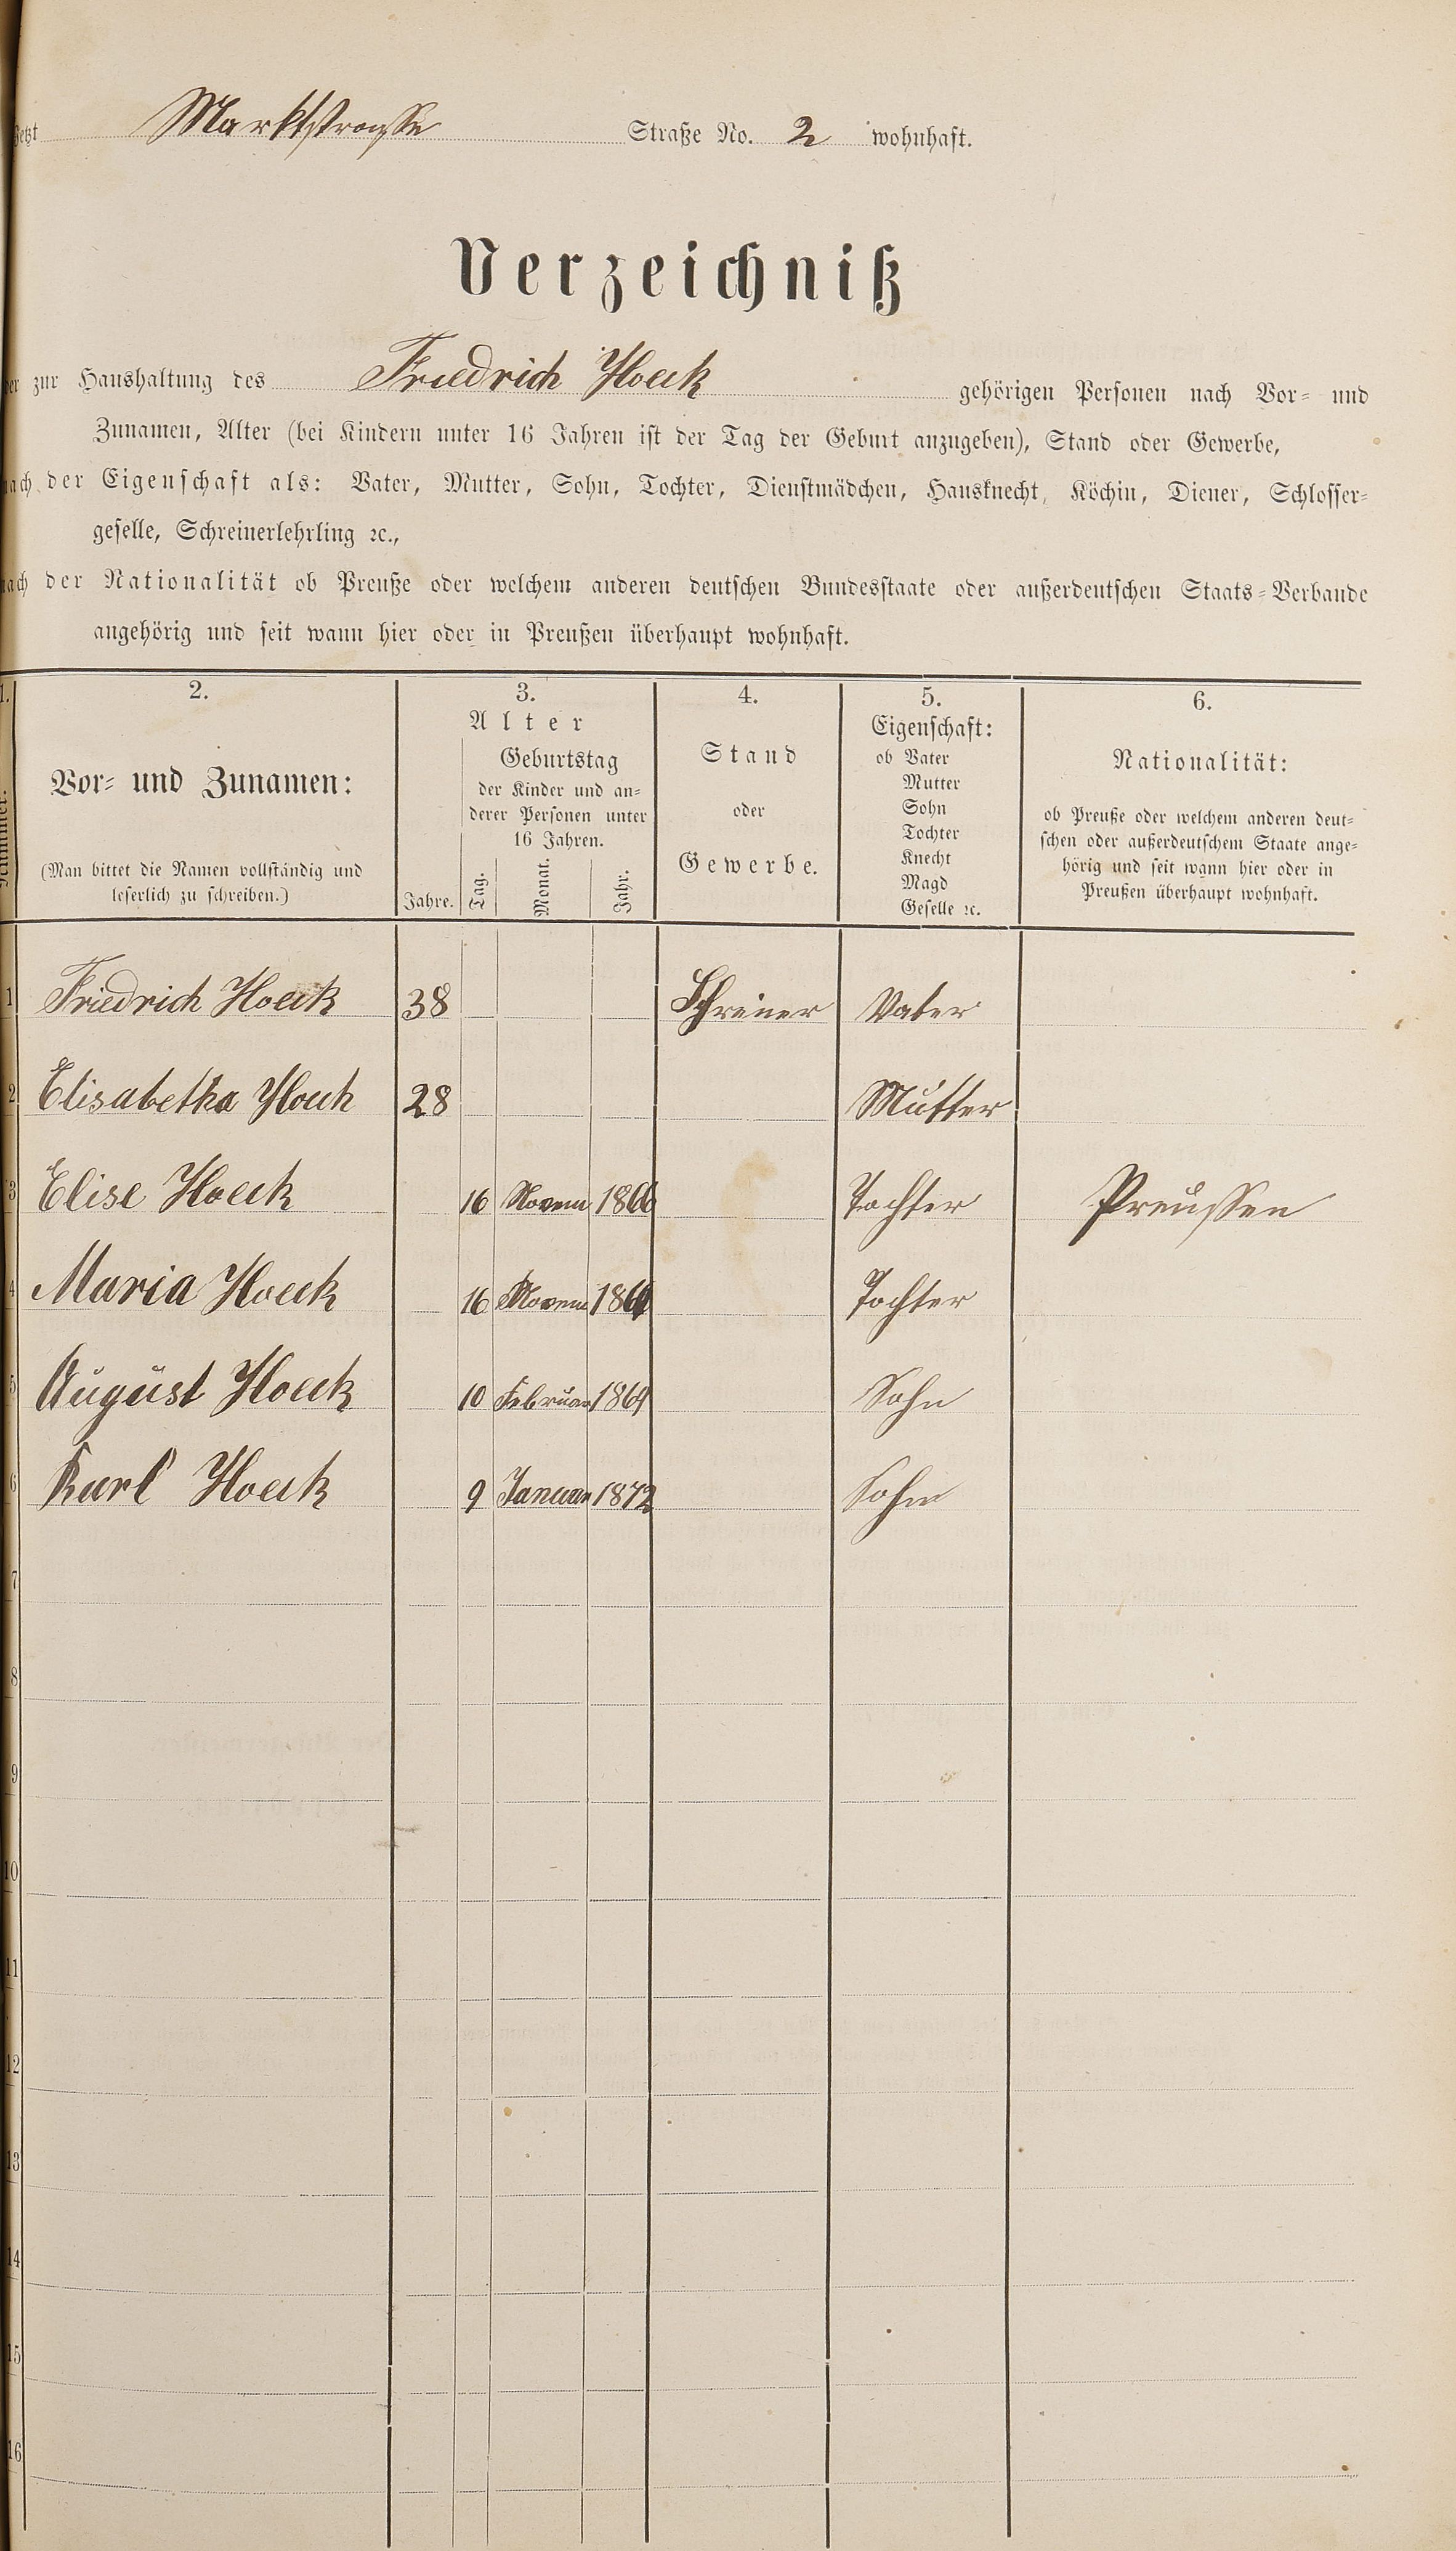 jetzt Marktstrasse Straße No. 2 wohnhaft.
Verzeichniß
der zur Haushaltung des Friedrich Hoeck gehörigen Personen nach Vor- und
Zunamen, Alter (bei Kindern unter 16 Jahren ist der Tag der Geburt anzugeben), Stand oder Gewerbe,
nach der Eigenschaft als: Vater, Mutter, Sohn, Tochter, Dienstmädchen, Hausknecht, Köchin, Diener, Schlosser-
geselle, Schreinerlehrling ꝛc.,
nach der Nationalität ob Preuße oder welchem anderen deutschen Bundesstaate oder außerdeutschen Staats-Verbande
angehörig und seit wann hier oder in Preußen überhaupt wohnhaft.
1. 2. 3. 4. 5. 6.
Nummer.
Vor- und Zunamen:
(Man bittet die Namen vollständig und
leserlich zu schreiben.)
Alter
Jahre.
Geburtstag
der Kinder und an-
derer Personen unter
16 Jahren.
Tag. Monat. Jahr.
Stand
oder
Gewerbe.
Eigenschaft:
ob Vater
Mutter
Sohn
Tochter
Knecht
Magd
Geselle ꝛc.
Nationalität:
ob Preuße oder welchem anderen deut-
schen oder außerdeutschem Staate ange-
hörig und seit wann hier oder in
Preußen überhaupt wohnhaft.
1 Friedrich Hoeck 38 Schreiner Vater
2 Elisabetha Hoeck 28 Mutter
3 Elise Hoeck 16 Novem 1866 Tochter Preussen
4 Maria Hoeck 16 Novem Tochter
5 August Hoeck 10 Februar 1869 Sohn
6 Karl Hoeck 9 Januar 1872 Sohn
7
8
9
10
11
12
13
14
15
16